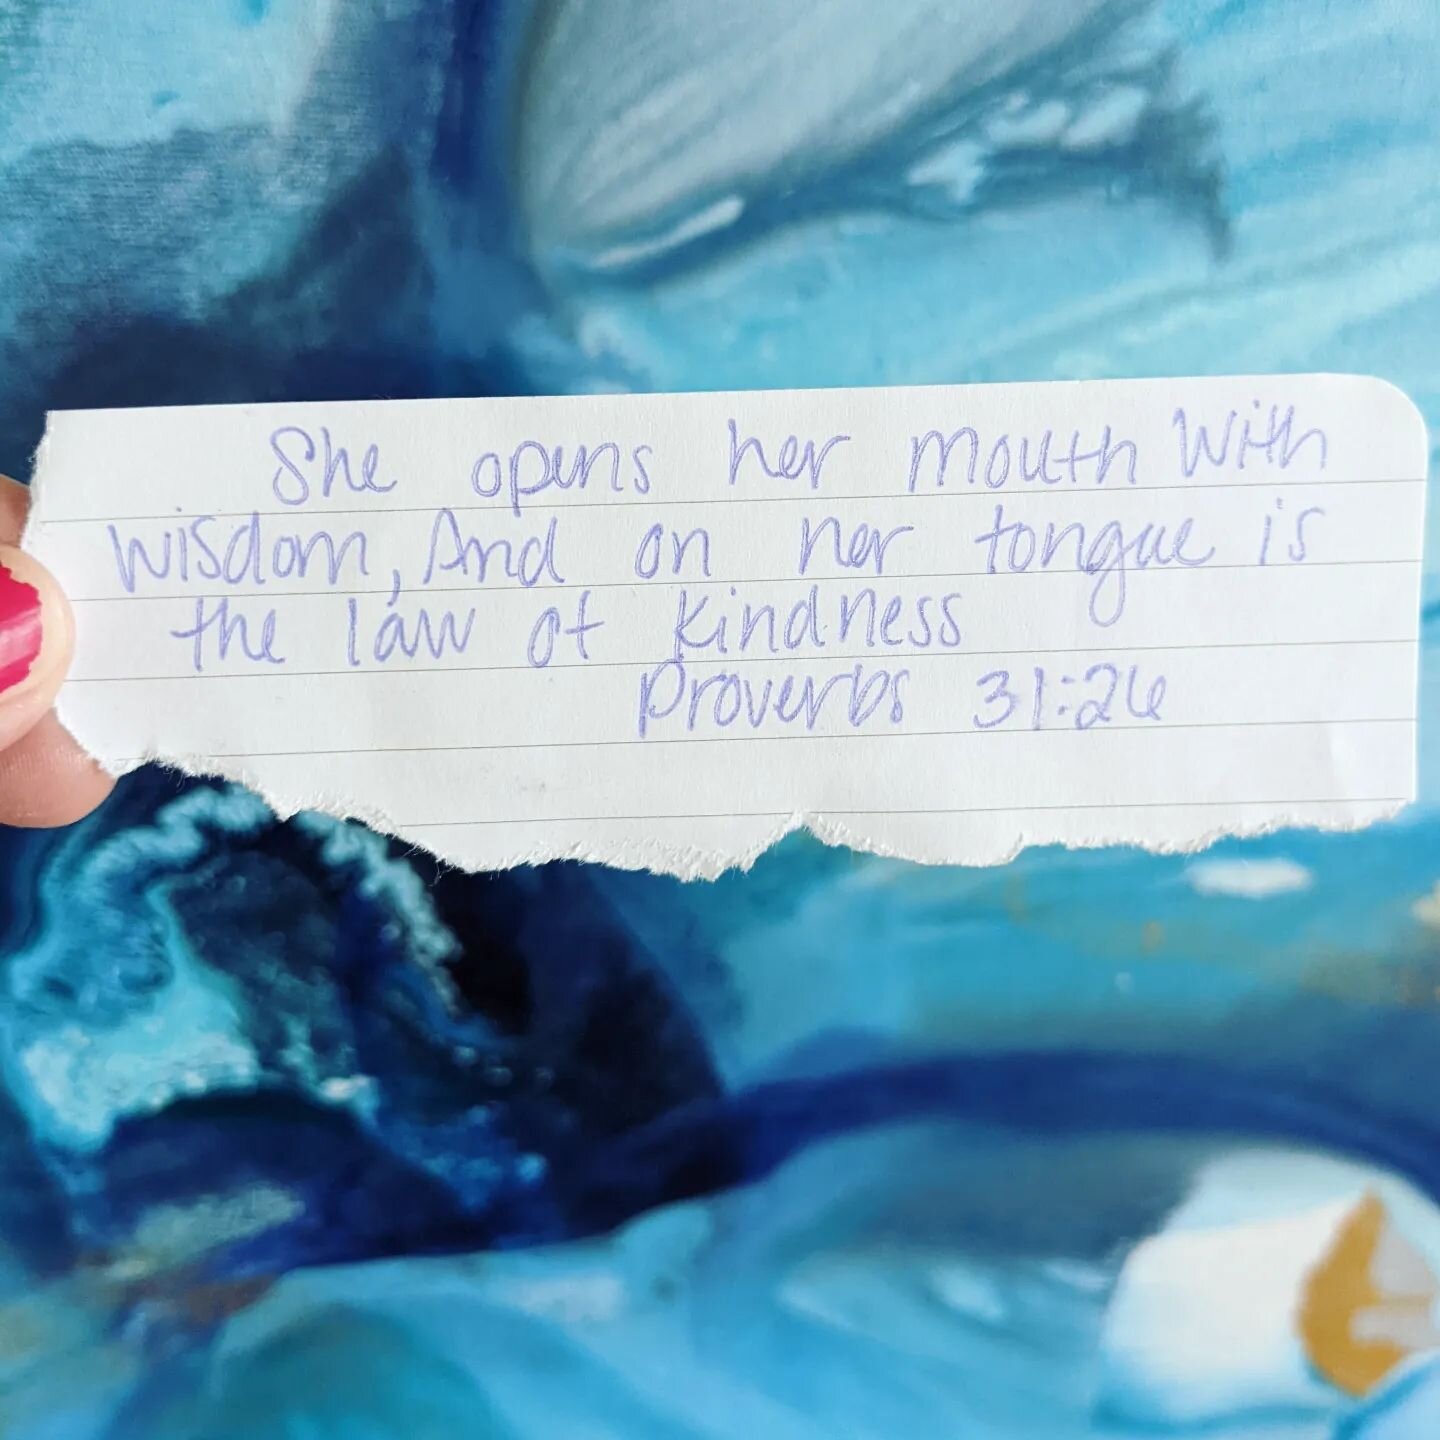 She opens her mouth with
wisdom, And on her tongue is
the law of kindness
Proverbs 31:26